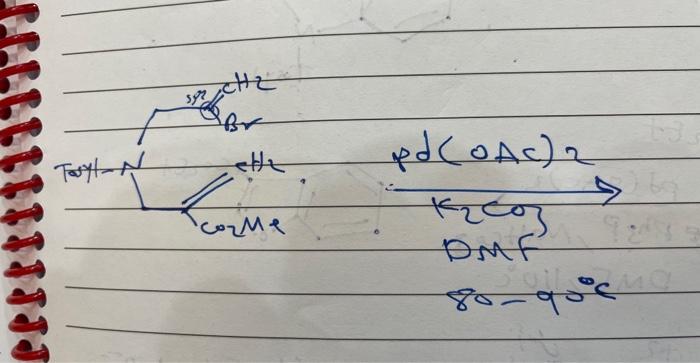 CH2
sp2
Br
Tosyl-N
CH2
CO2Me
pd(OAc)2
K2CO3
DMF
80-90°C